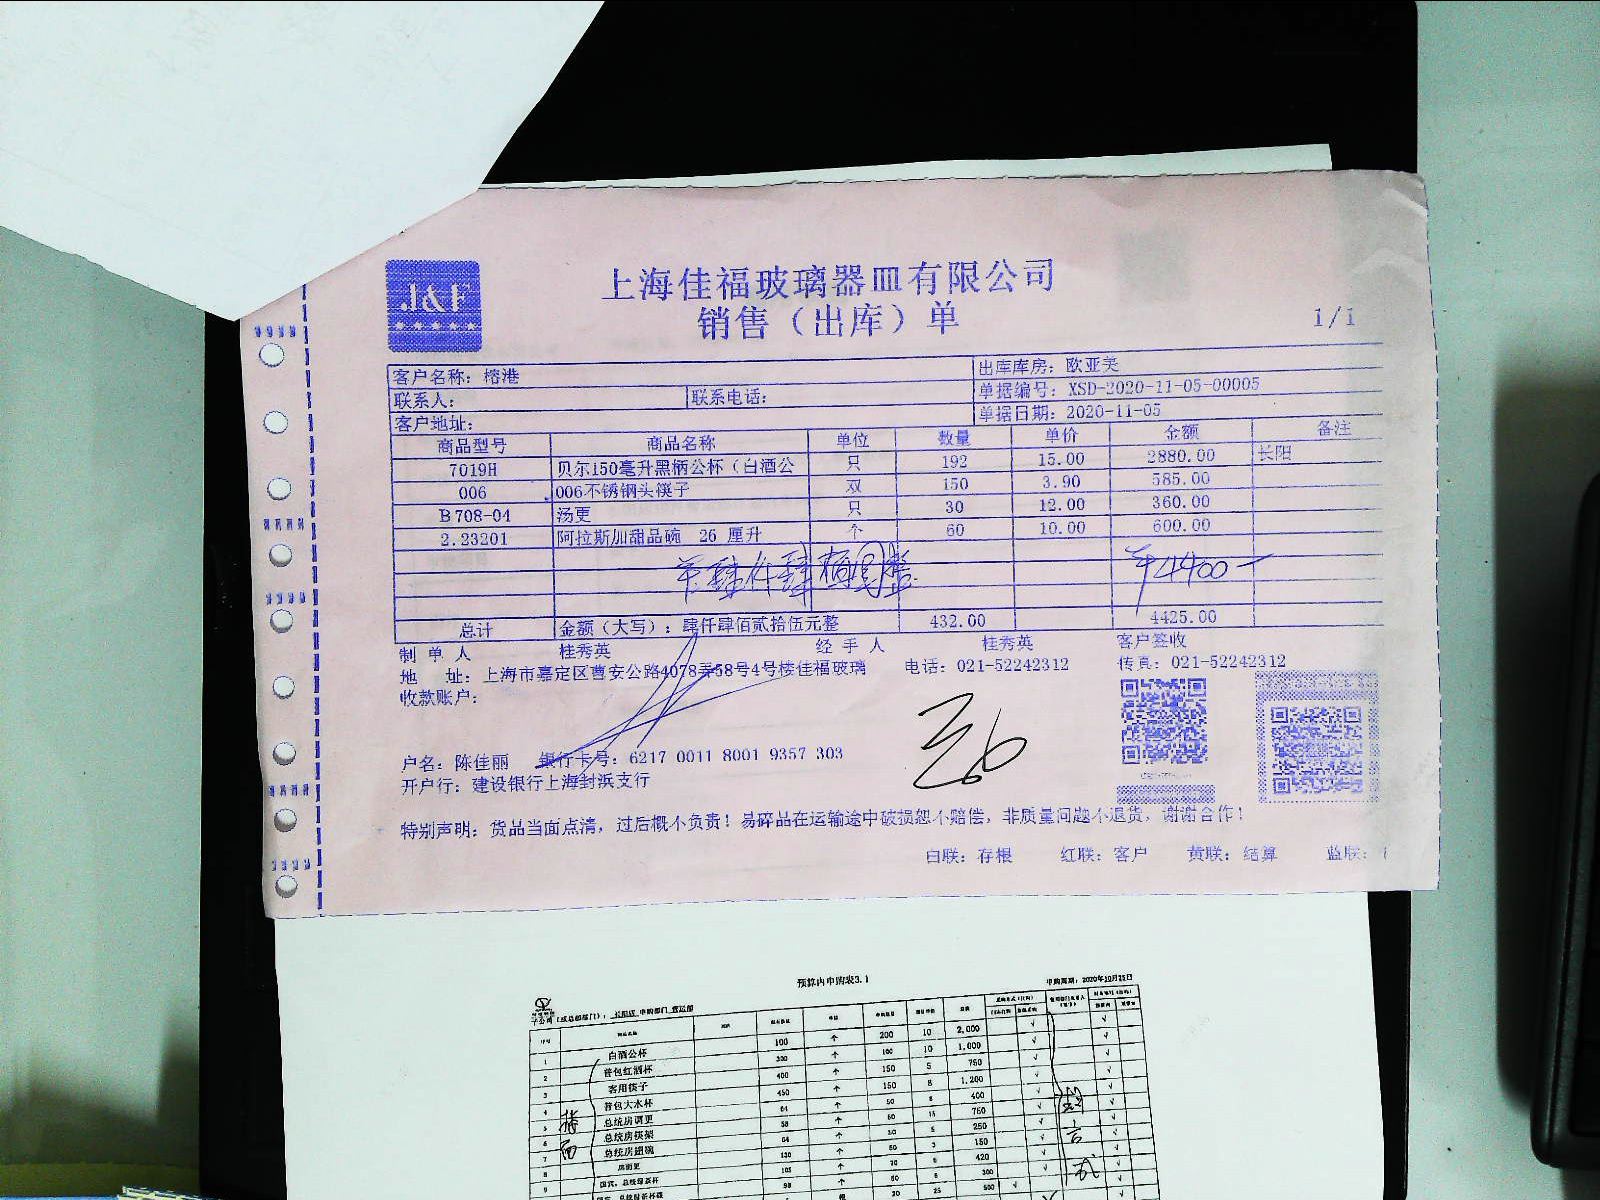 上海佳福玻璃器皿有限公司
销售（出库）单
1/1
客户名称：榕港
出库库房：欧亚美
联系人：
联系电话：
单据编号：XSD-2020-11-05-00005
客户地址：
单据日期：2020-11-05
商品型号 商品名称 单位 数量 单价 金额 备注
7019H 贝尔150毫升黑柄公杯（白酒公 只 192 15.00 2880.00 长阳
006 006不锈钢头筷子 双 150 3.90 585.00
B708-04 汤更 只 30 12.00 360.00
2.23201 阿拉斯加甜品碗 26 厘升 个 60 10.00 600.00
肆仟肆佰圆整 ¥4400-
总计 金额（大写）：肆仟肆佰贰拾伍元整 432.00 4425.00
制单人 桂秀英 经手人 桂秀英 客户签收
地 址：上海市嘉定区曹安公路4078弄58号4号楼佳福玻璃 电话：021-52242312 传真：021-52242312
收款账户：
户名：陈佳丽 银行卡号：6217 0011 8001 9357 303
开户行：建设银行上海封浜支行
特别声明：货品当面点清，过后概不负责！易碎品在运输途中破损恕不赔偿，非质量问题不退货，谢谢合作！
白联：存根 红联：客户 黄联：结算 蓝联：
预算内申购表3.1
申购周期：2020年10月25日
白酒公杯 100 个 200 10 2,000
普包红酒杯 300 个 100 10 1,000
客用筷子 400 个 150 5 750
普包大水杯 450 个 150 8 1,200
总统房调更 64 个 50 8 400
总统房筷架 58 个 50 15 750
总统房翅碗 64 个 50 5 250